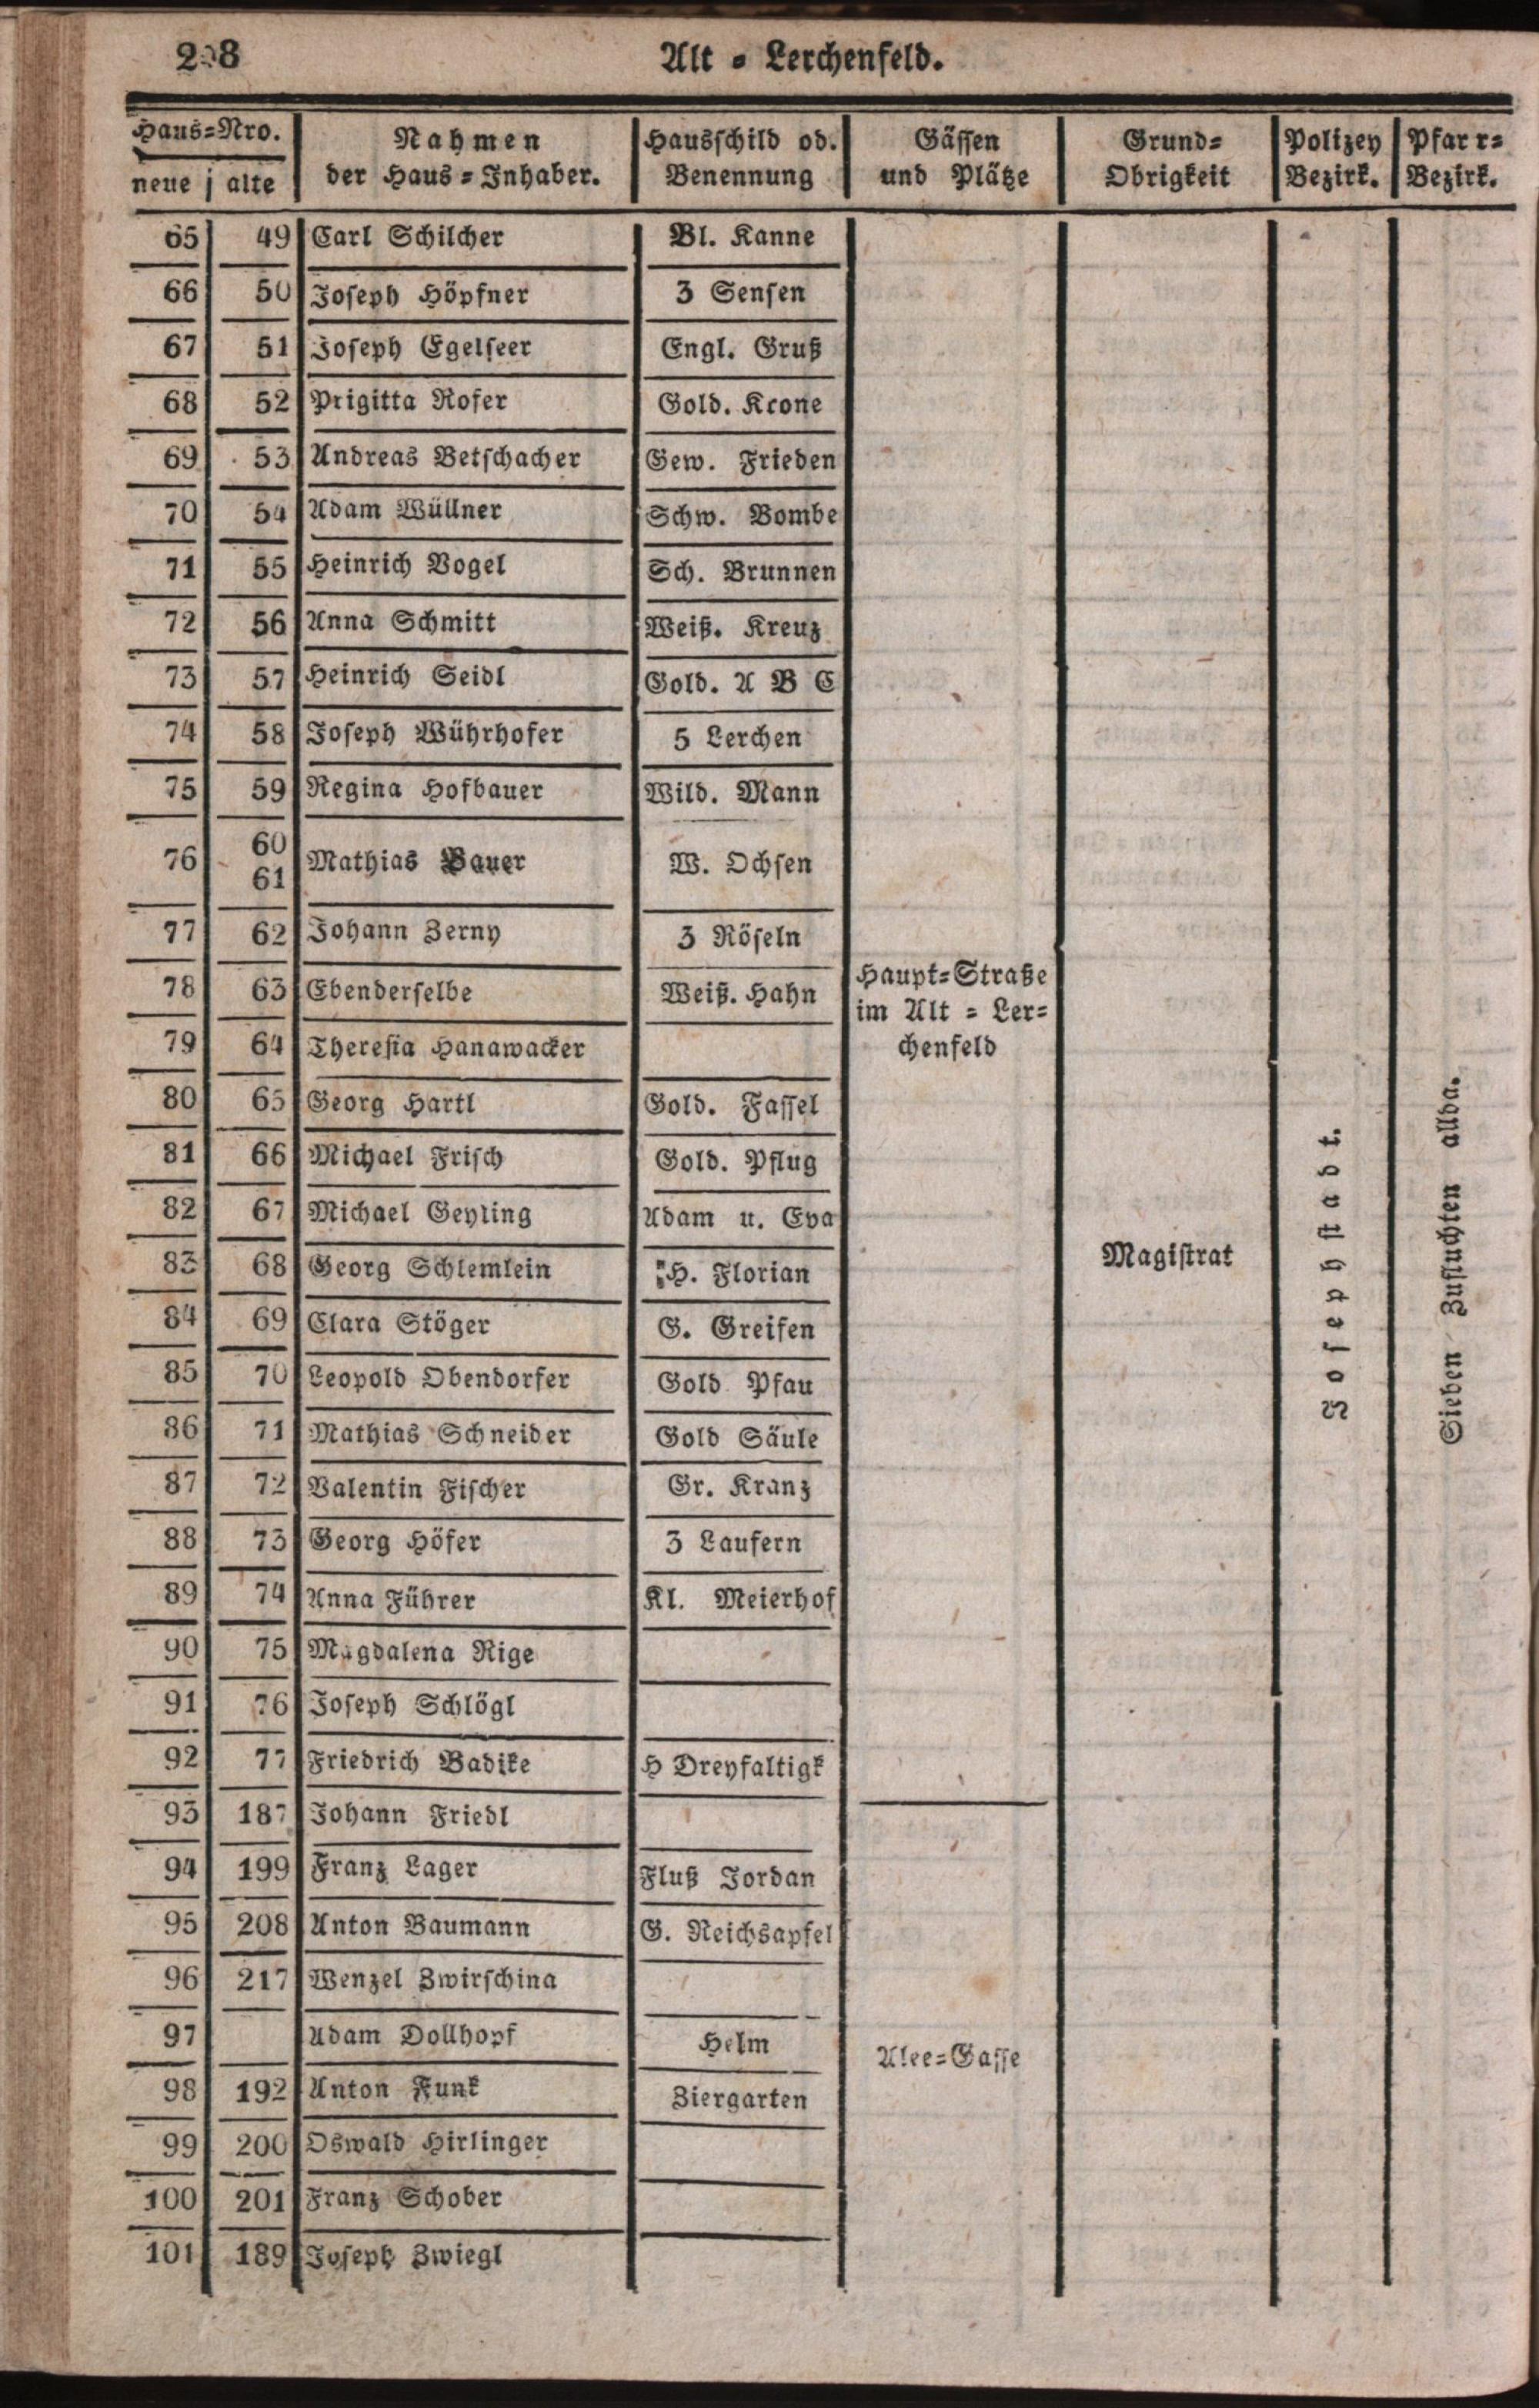 208 Alt - Lerchenfeld.
Haus-Nro. Nahmen Hausschild od. Gässen Grund- Polizey Pfarr-
neue alte der Haus-Inhaber. Benennung und Plätze Obrigkeit Bezirk. Bezirk.
65 49 Carl Schilcher Bl. Kanne
66 50 Joseph Höpfner 3 Sensen
67 51 Joseph Egelseer Engl. Gruß
68 52 Prigitta Rofer Gold. Krone
69 53 Andreas Betschacher Gew. Frieden
70 54 Adam Wüllner Schw. Bombe
71 55 Heinrich Vogel Sch. Brunnen
72 56 Anna Schmitt Weiß. Kreuz
73 57 Heinrich Seidl Gold. A B C
74 58 Joseph Wührhofer 5 Lerchen
75 59 Regina Hofbauer Wild. Mann
76 60 61 Mathias Bauer W. Ochsen
77 62 Johann Zerny 3 Röseln
78 63 Ebenderselbe Weiß. Hahn
79 64 Theresia Hanawacker
80 65 Georg Hartl Gold. Fassel
81 66 Michael Frisch Gold. Pflug
82 67 Michael Geyling Adam u. Eva
83 68 Georg Schlemlein H. Florian
84 69 Clara Stöger G. Greifen
85 70 Leopold Obendorfer Gold Pfau
86 71 Mathias Schneider Gold Säule
87 72 Valentin Fischer Gr. Kranz
88 73 Georg Höfer 3 Laufern
89 74 Anna Führer Kl. Meierhof
90 75 Magdalena Rige
91 76 Joseph Schlögl
92 77 Friedrich Badike H Dreyfaltigk
93 187 Johann Friedl
94 199 Franz Lager Fluß Jordan
95 208 Anton Baumann G. Reichsapfel
96 217 Wenzel Zwirschina
97 Adam Dollhopf Helm
98 192 Anton Funk Ziergarten
99 200 Oswald Hirlinger
100 201 Franz Schober
101 189 Joseph Zwiegl
Haupt-Straße
im Alt - Ler-
chenfeld
Alee-Gasse
Magistrat
Josephstadt.
Sieben Zufluchten allda.